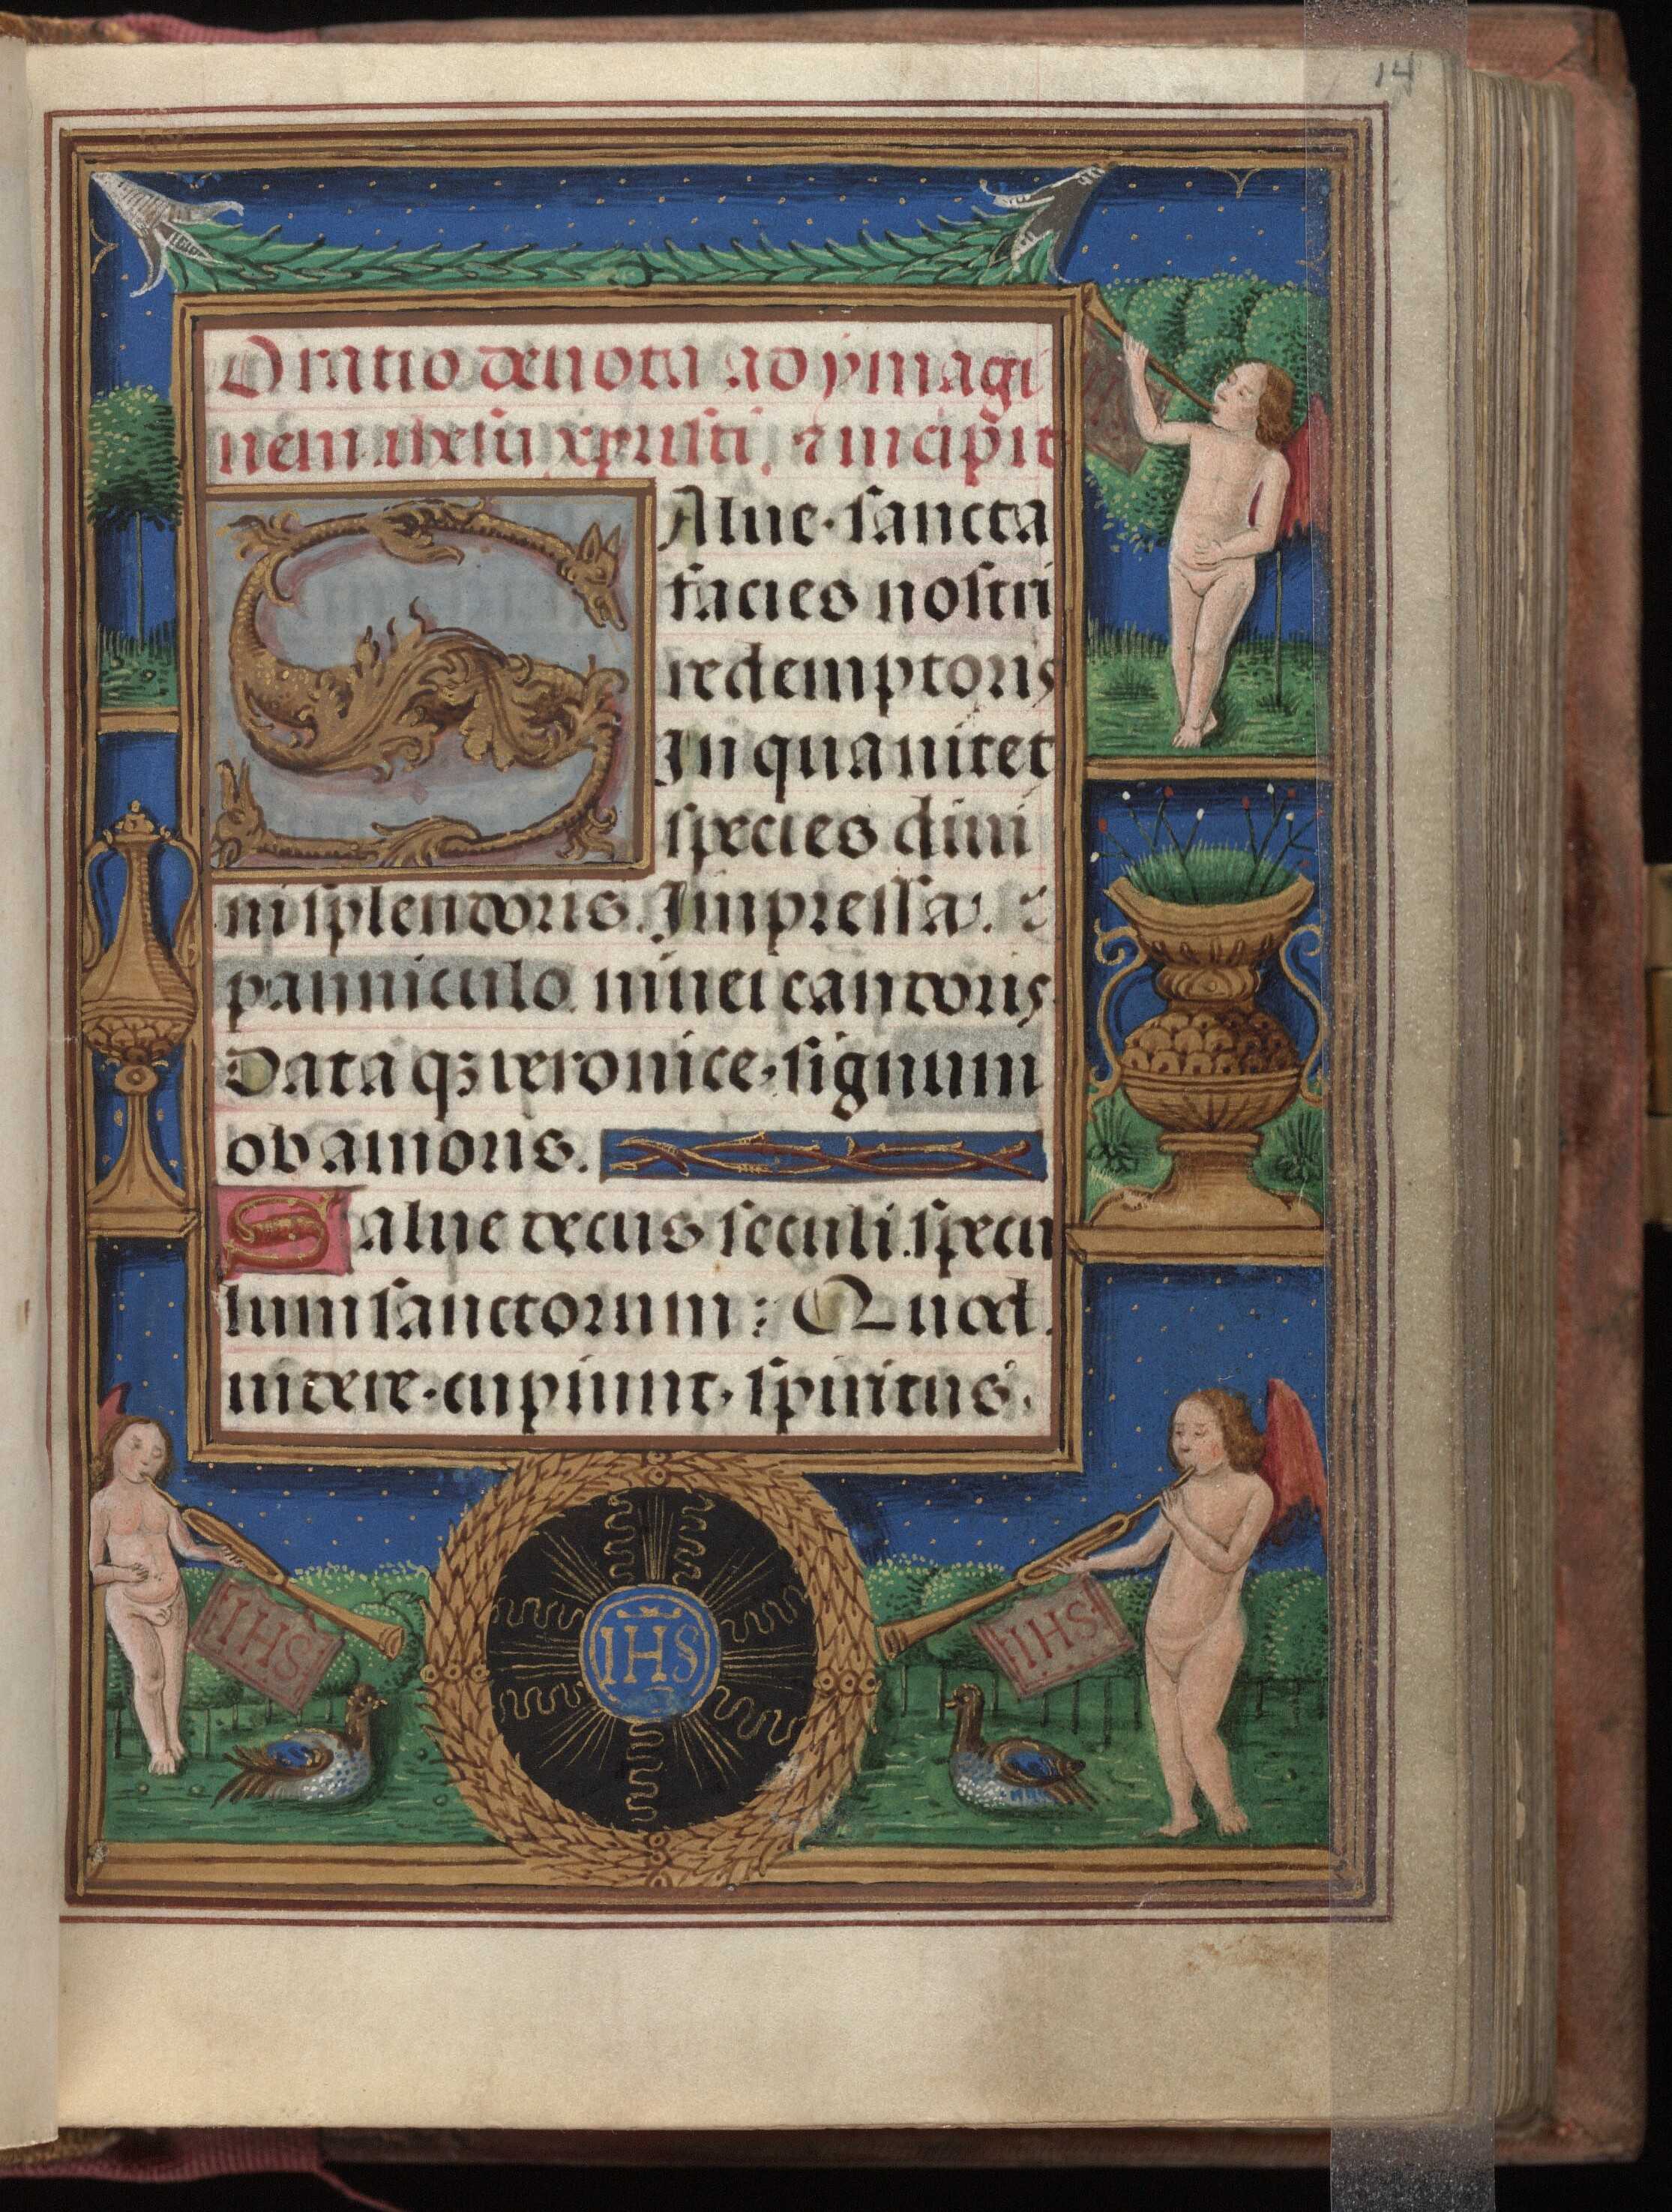 14
Oratio deuota ad ymagi
nem ihesu xpristi. ⁊ incipit
SAlue·sancta
facies nostri
redemptoris
In qua nitet
species diui
ni splendoris. Impressa. ⁊
panniculo niuei candoris
Data qꝫ veronice, signum
ob amoris.
Salue decus seculi. specu
lum sanctorum: Quod
uidere·cupiunt, spiritus
IHS
IHS
IHS